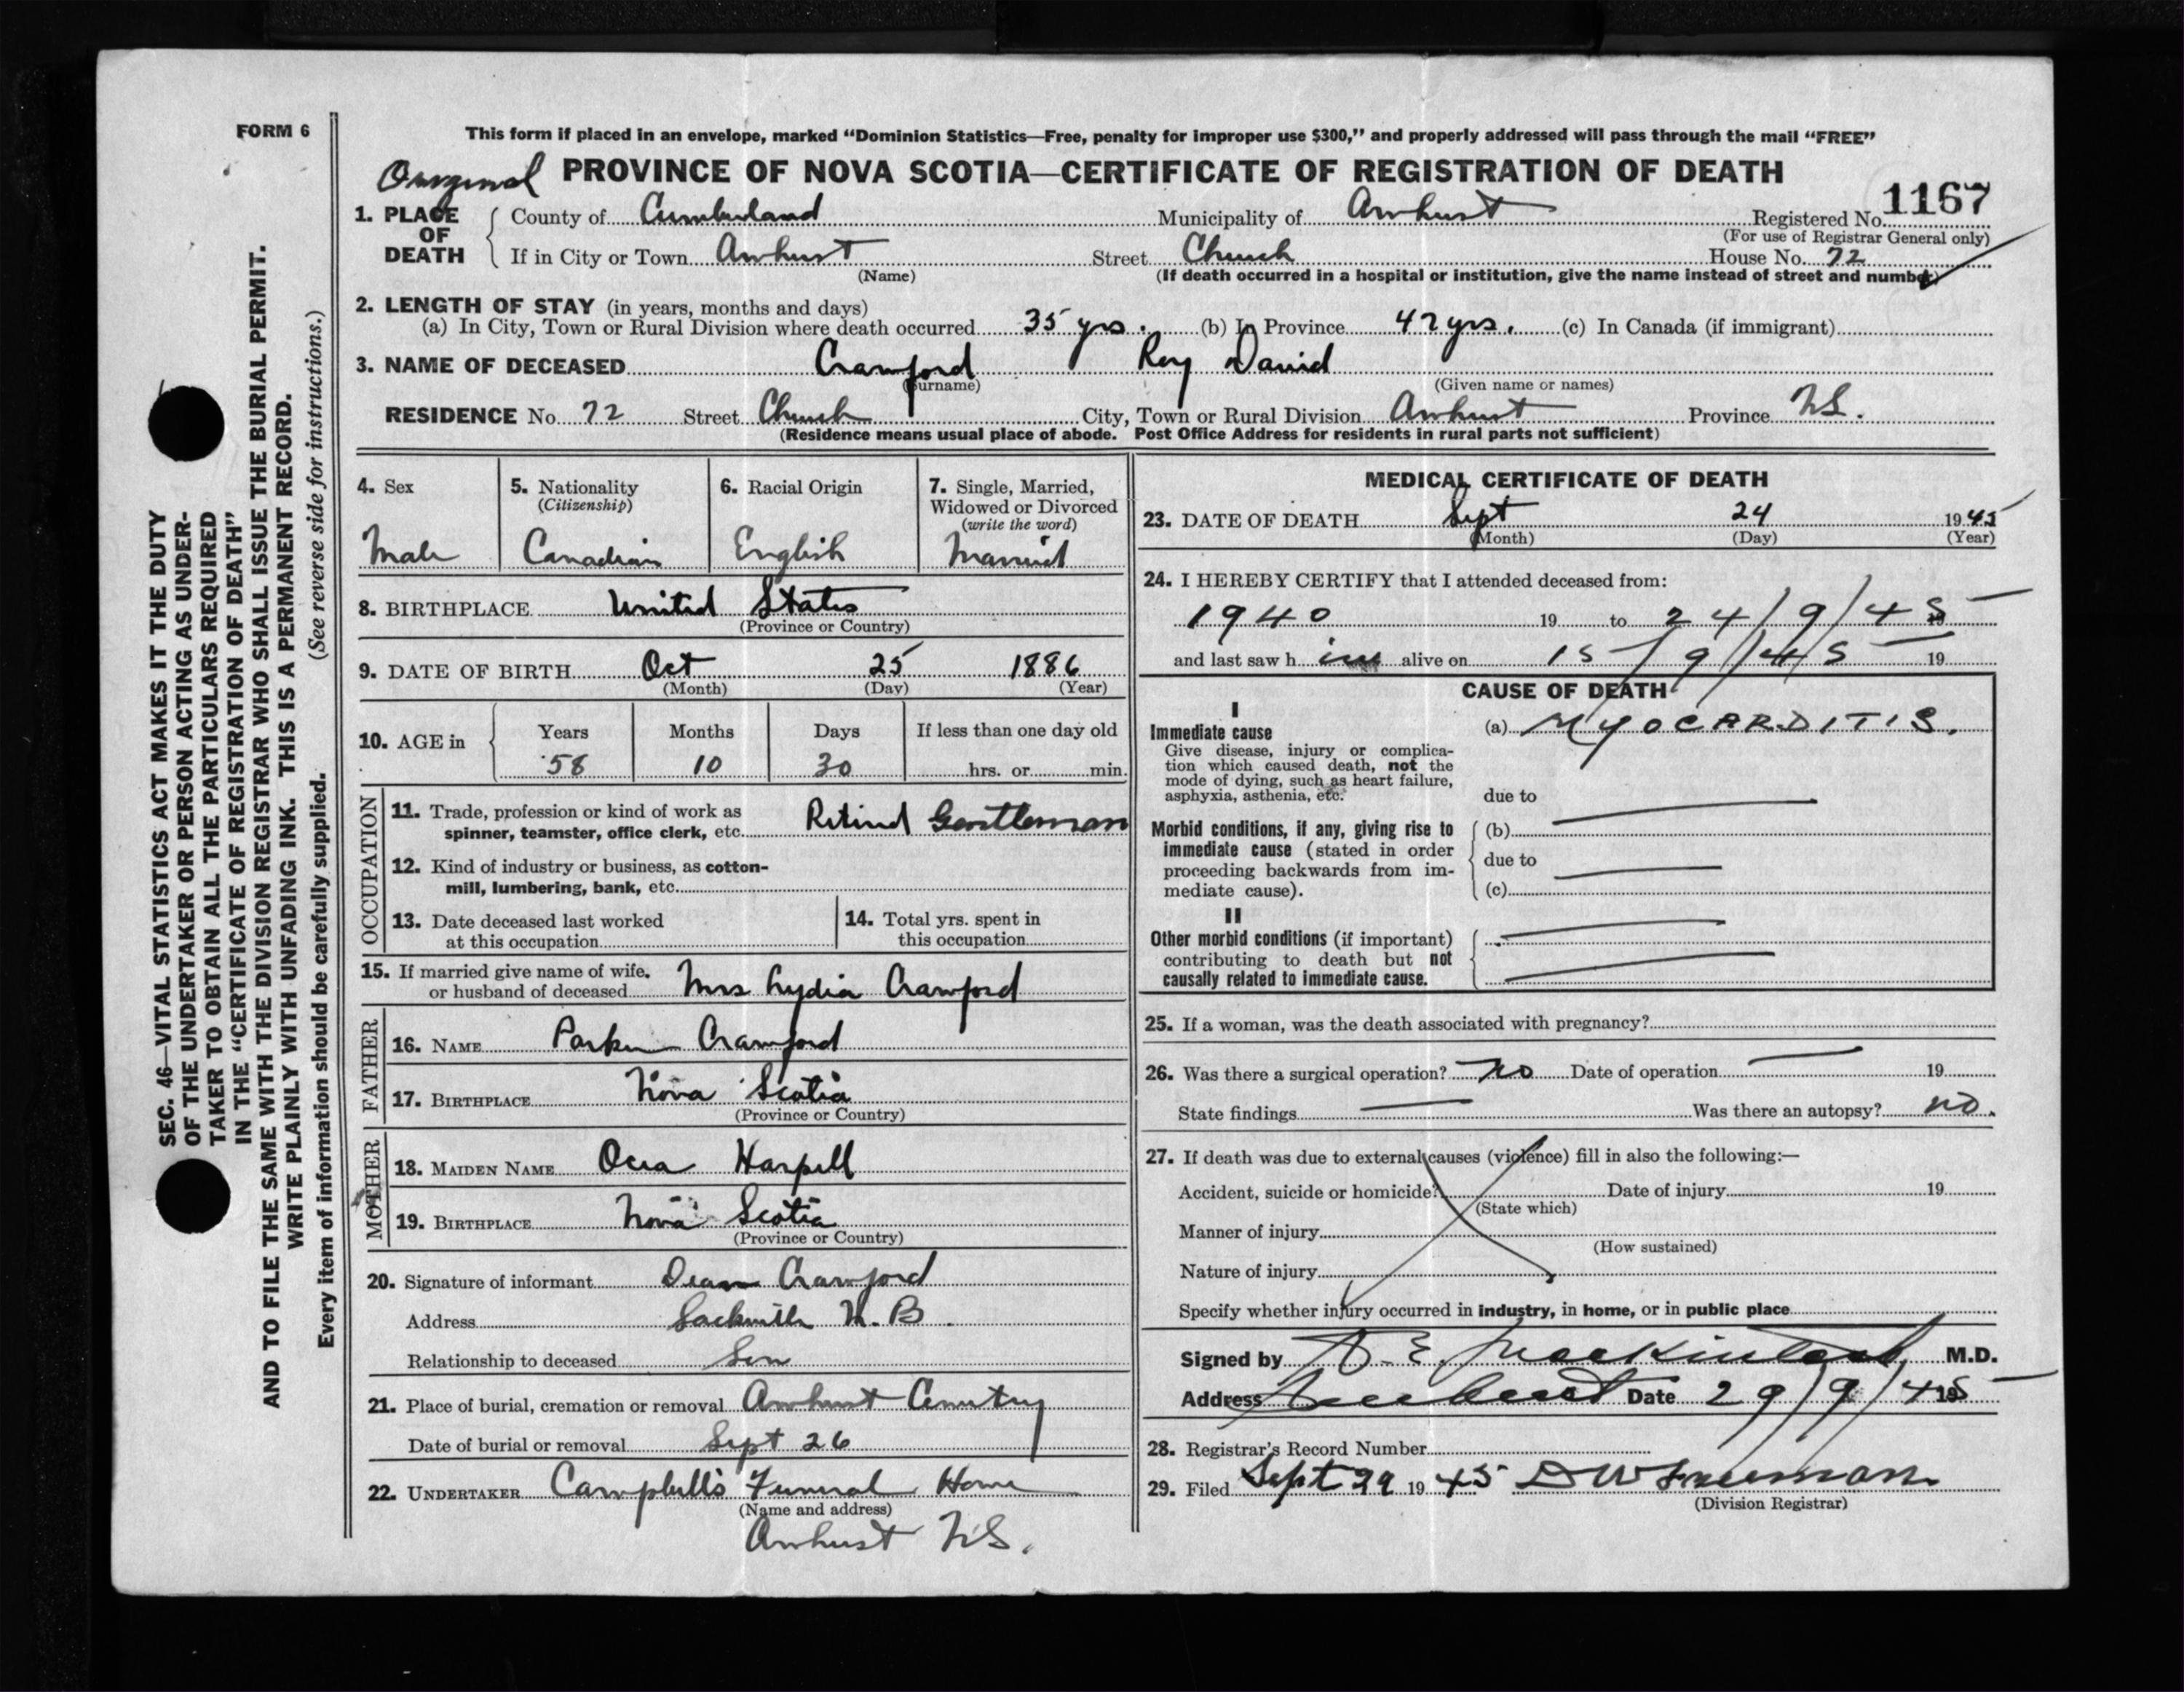 FORM 6
This form if placed in an envelope, marked “Dominion Statistics—Free, penalty for improper use $300,” and properly addressed will pass through the mail “FREE”
Original PROVINCE OF NOVA SCOTIA—CERTIFICATE OF REGISTRATION OF DEATH
1167
1. PLACE OF DEATH { County of Cumberland Municipality of Amherst Registered No.
(For use of Registrar General only)
If in City or Town Amherst Street Church House No. 72
(Name) (If death occurred in a hospital or institution, give the name instead of street and number)
2. LENGTH OF STAY (in years, months and days)
(a) In City, Town or Rural Division where death occurred 35 yrs. (b) In Province 47 yrs. (c) In Canada (if immigrant)
3. NAME OF DECEASED Crawford Roy David
(Surname) (Given name or names)
RESIDENCE No. 72 Street Church City, Town or Rural Division Amherst Province NS.
(Residence means usual place of abode. Post Office Address for residents in rural parts not sufficient)
4. Sex
Male
5. Nationality
(Citizenship)
Canadian
6. Racial Origin
English
7. Single, Married,
Widowed or Divorced
(write the word)
Married
8. BIRTHPLACE United States
(Province or Country)
9. DATE OF BIRTH Oct 25 1886
(Month) (Day) (Year)
10. AGE in { Years Months Days If less than one day old
58 10 30 hrs. or min.
OCCUPATION
11. Trade, profession or kind of work as
spinner, teamster, office clerk, etc. Retired Gentleman
12. Kind of industry or business, as cotton-
mill, lumbering, bank, etc.
13. Date deceased last worked
at this occupation
14. Total yrs. spent in
this occupation
15. If married give name of wife,
or husband of deceased Mrs Lydia Crawford
FATHER
16. NAME Parker Crawford
17. BIRTHPLACE Nova Scotia
(Province or Country)
MOTHER
18. MAIDEN NAME Harpell
19. BIRTHPLACE Nova Scotia
(Province or Country)
20. Signature of informant Dean Crawford
Address Sackville N.B.
Relationship to deceased Son
21. Place of burial, cremation or removal Amherst Cemetry
Date of burial or removal Sept 26
22. UNDERTAKER Campbell's Funeral Home
(Name and address)
Amherst NS.
MEDICAL CERTIFICATE OF DEATH
23. DATE OF DEATH Sept 24 1945
(Month) (Day) (Year)
24. I HEREBY CERTIFY that I attended deceased from:
1940 19 to 24/9/45 19
and last saw h im alive on 15/9/45 19
CAUSE OF DEATH
I
Immediate cause
Give disease, injury or complica-
tion which caused death, not the
mode of dying, such as heart failure,
asphyxia, asthenia, etc.
(a) MYOCARDITIS.
due to
Morbid conditions, if any, giving rise to
immediate cause (stated in order
proceeding backwards from im-
mediate cause).
(b)
due to
(c)
II
Other morbid conditions (if important)
contributing to death but not
causally related to immediate cause.
25. If a woman, was the death associated with pregnancy?
26. Was there a surgical operation? No Date of operation 19
State findings Was there an autopsy? no.
27. If death was due to external causes (violence) fill in also the following:—
Accident, suicide or homicide? Date of injury 19
(State which)
Manner of injury
(How sustained)
Nature of injury
Specify whether injury occurred in industry, in home, or in public place
Signed by Mackintosh M.D.
Address Amherst Date 29/9/45 19
28. Registrar's Record Number
29. Filed Sept 29 1945
(Division Registrar)
SEC. 46—VITAL STATISTICS ACT MAKES IT THE DUTY
OF THE UNDERTAKER OR PERSON ACTING AS UNDER-
TAKER TO OBTAIN ALL THE PARTICULARS REQUIRED
IN THE “CERTIFICATE OF REGISTRATION OF DEATH”
AND TO FILE THE SAME WITH THE DIVISION REGISTRAR WHO SHALL ISSUE THE BURIAL PERMIT.
WRITE PLAINLY WITH UNFADING INK. THIS IS A PERMANENT RECORD.
Every item of information should be carefully supplied. (See reverse side for instructions.)